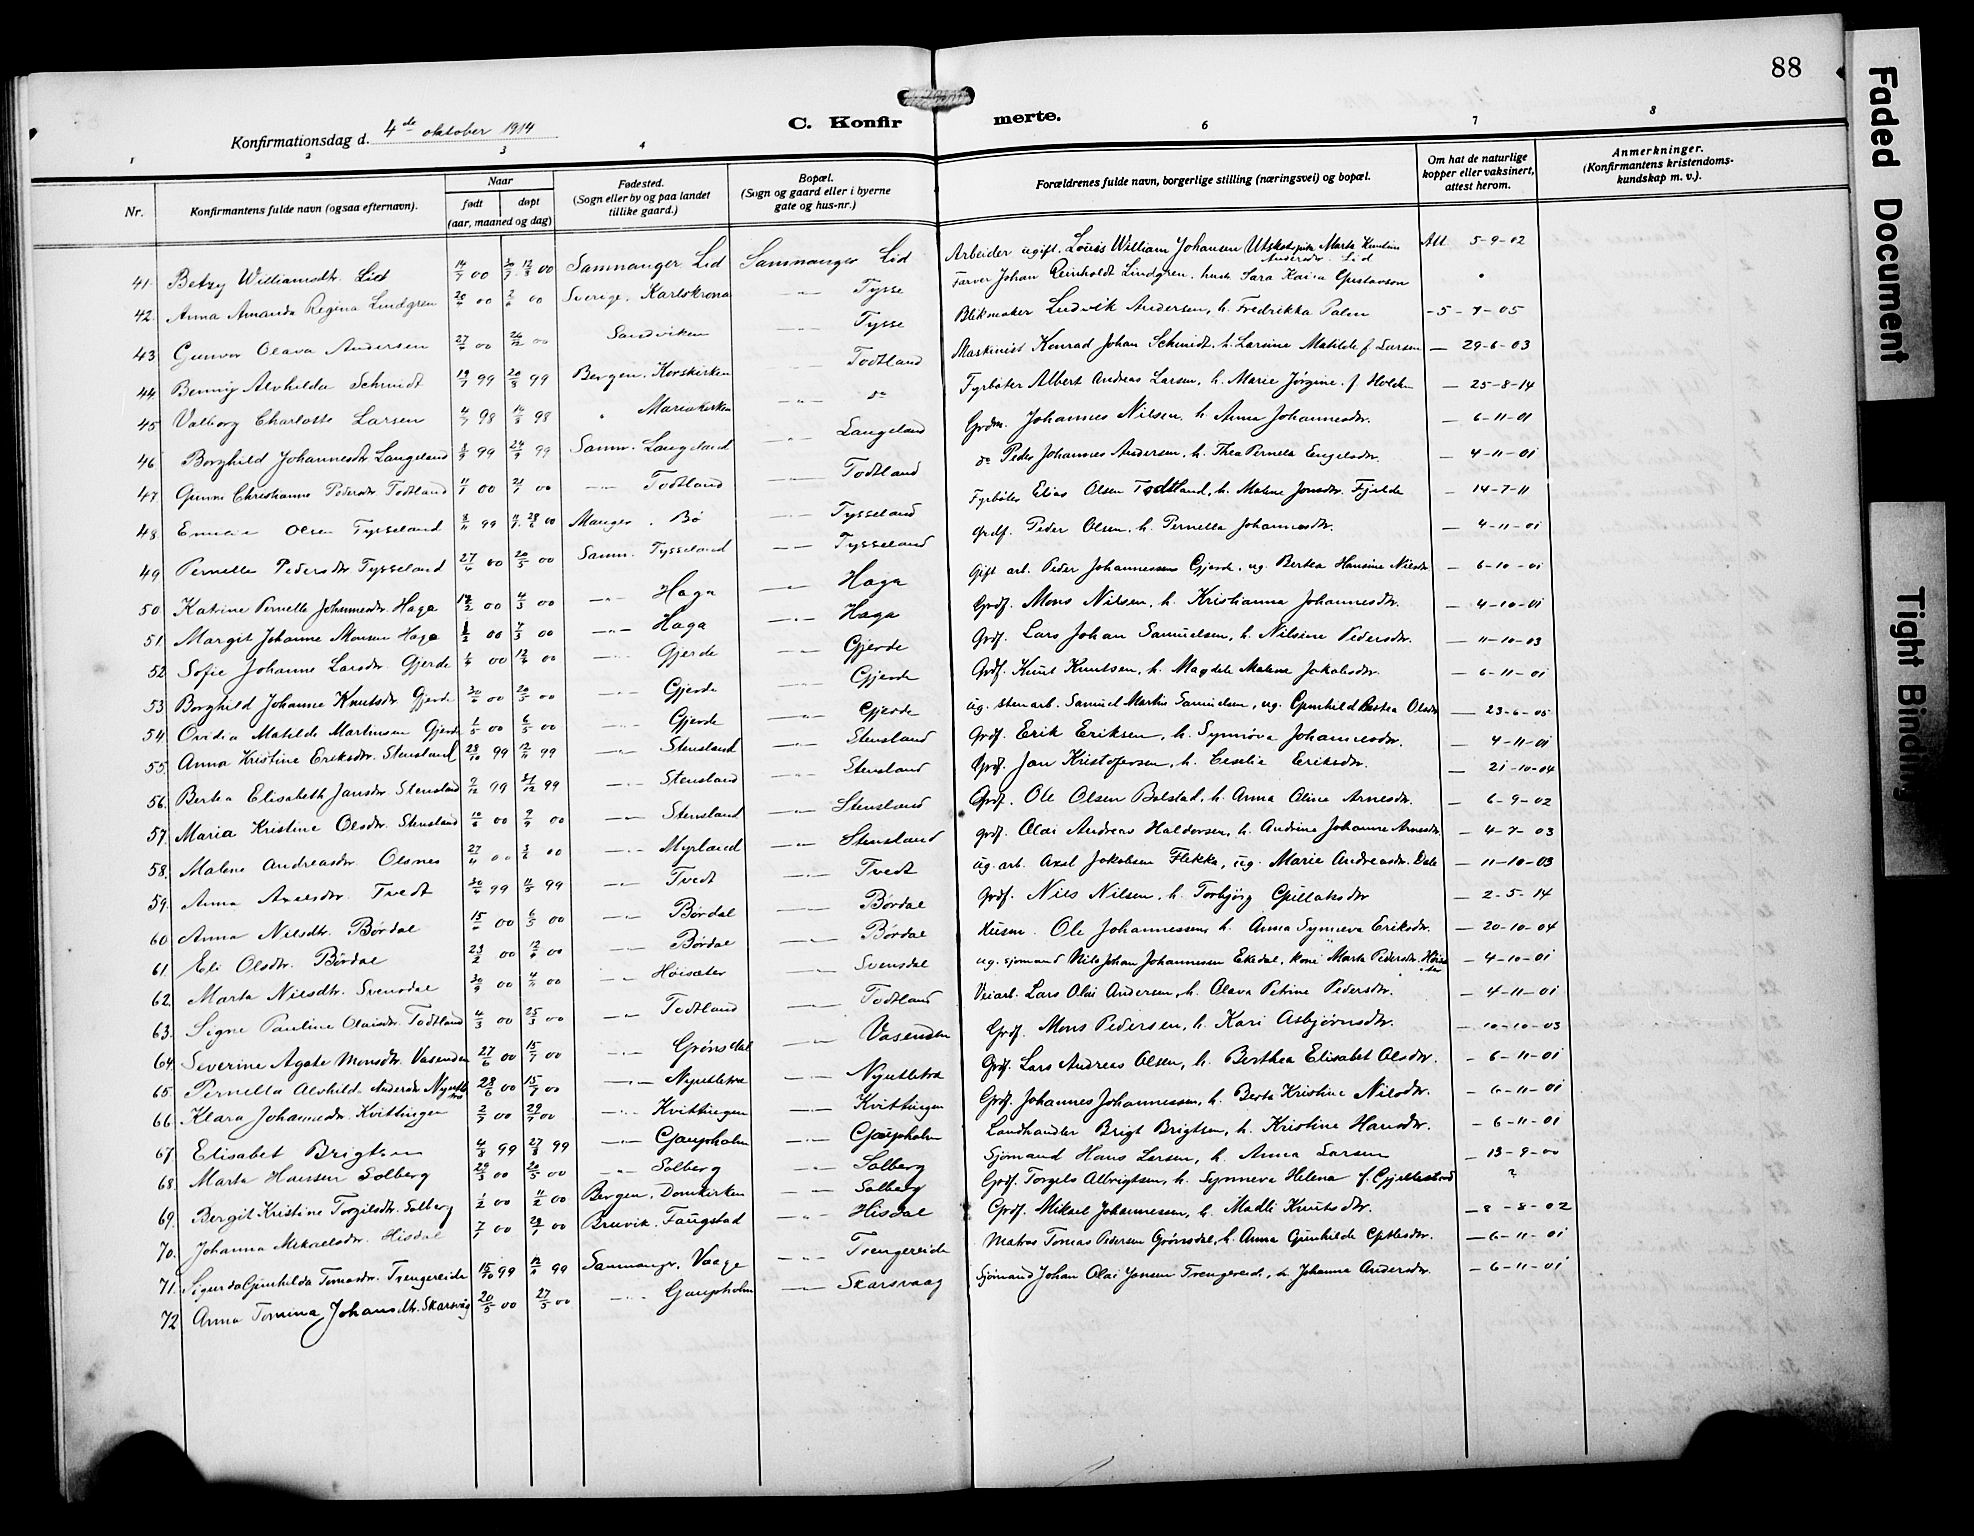 88
Konfirmationsdag d. 4de oktober 1914
C. Konfirmerte.
1 2 3 4 6 7 8
Nr.
Konfirmantens fulde navn (ogsaa efternavn).
Naar
født
døpt
(aar, maaned og dag)
Fødested.
(Sogn eller by og paa landet
tillike gaard.)
Bopæl.
(Sogn og gaard eller i byerne
gate og hus-nr.)
Forældrenes fulde navn, borgerlige stilling (næringsvei) og bopæl.
Om hat de naturlige
kopper eller vaksinert,
attest herom.
Anmerkninger.
(Konfirmantens kristendoms-
kundskap m. v.).
41. Betzy Williamsdtr. Lid 00 00 Samnanger Lid Samnanger Lid Arbeider ugift. Louis William Johansen Marta Andersdtr. Lid Att 5-9-02
42. Anna Amanda Regina Lindgren 00 00 Sverige. Karlskrona -"- Tysse Farver Johan Reinholdt Lindgren. hustr. Sara Kaisa Gustavson "
43. Gunvor Olava Andersen 27 00 00 Sandviken -"- Tysse Blikmaker Ludvik Andersen, h. Fredrikka Palm -5-7-05
44. Benny Alvhilda Schmidt 99 20 99 Bergen. Korskirken -"- Todtland Maskinist Konrad Johan Schmidt. h. Larsine Matilde f. Larsen — 29-6-03
45. Valborg Charlotte Larsen 98 98 " Mariakirken -"- do Fyrbøter Albert Andreas Larsen, h. Marie Jørgine f. Holden — 25-8-14
46. Borghild Johannesdtr Langeland 99 99 Samn. Langeland -"- Langeland Grdm. Johannes Nilsen, h. Anna Johannesdtr. — 6-11-01
47. Gunna Christianne Pedersdtr. Todtland 00 00 -"- Todtland -"- Todtland do Peder Johannes Andersen, h. Thea Pernela Engelsdtr. — 4-11-01
48. Olsen Tysseland 99 00 Manger. Bø -"- Tysseland Fyrbøter Elias Olsen Todtland, h. Malene Jonsdtr. Fjelde — 14-7-11
49. Pernella Pedersdtr Tysseland 27 00 20/5 00 Samn. Tysseland -"- Tysseland Grdf. Peder Olsen. h. Pernella Johannesdtr. — 4-11-01
50. Katrine Pernelle Johannesdtr. Haga 00 4/3 00 -"- Haga -"- Haga Gift arb. Peder Johannessen Gjerde. ug. Bertea Hansine Nilsdtr — 6-10-01
51. Margit Johanne Monsen Haga 00 4/3 00 -"- Haga -"- Haga Grdf. Mons Nilsen, h. Kristianna Johannesdtr. — 4-10-01
52. Sofie Johanne Larsdtr Gjerde 00 00 -"- Gjerde -"- Gjerde Grdf. Lars Johan Samuelsen, h. Nilsine Pedersdtr. — 11-10-03
53. Borghild Johanne Knutsdtr Gjerde 00 20/5 00 -"- Gjerde -"- Gjerde Grdf. Knut Knutsen, h. Magdela Malena Jakobsdtr. — 6-11-01
54. Ovidia Matilde Martinsen Gjerde 1/5 00 6/5 00 -"- Gjerde -"- Gjerde ug. stenarb. Samuel Martin Samuelsen, ug. Gunhild Bertea Olsdtr — 23-6-05
55. Anna Kristine Eriksdtr. Stensland 28/10 99 99 -"- Stensland -"- Stensland Grdf. Erik Eriksen, h. Synnøva Johannesdtr. — 4-11-01
56. Bertea Elisabeth Jansdtr. Stensland 99 31/12 99 -"- Stensland -"- Stensland Grdf. Jan Kristofersen, h. Ceselie Eriksdtr. — 21-10-04
57. Maria Kristine Olsdtr. Stensland 00 00 -"- Stensland -"- Stensland Grdf. Ole Olsen Bolstad, h. Anna Olina Arnesdtr. — 6-9-02
58. Malene Andreasdtr Olsnes 27 00 00 -"- Myrland -"- Stensland grdf. Olai Andreas Haldorsen, h. Andrina Johanne Arnesdtr. — 4-7-03
59. Anna Axelsdtr. Tvedt 99 99 -"- Tvedt -"- Tvedt ug. arb. Axel Jakobsen Flekke, ug. Marie Andreasdtr. Dale — 11-10-03
60. Anna Nilsdtr. Børdal 15 00 6/5 00 -"- Børdal -"- Børdal Grdf. Nils Nilsen, h. Torbjørg — 2-5-14
61. Eli Olsdtr. Børdal 00 00 -"- Børdal -"- Børdal Husm. Ole Johannessen h. Anna Synneva Eriksdtr. — 20-10-04
62. Marta Nilsdtr. Svensdal 00 00 -"- Høisæter -"- Svensdal ug. sjømand Nils Johan Johannessen Ekedal, kone Marta Pedersdtr. — 4-10-01
63. Signe Pauline Olaisdtr. Todtland 4/3 00 25/3 00 -"- Todtland -"- Todtland Veiarb. Lars Olai Andersen, h. Olava Petrine Pedersdtr. — 4-11-01
64. Severine Agate Monsdtr. Vasenden 27/6 00 15/7 00 -"- Grønsdal -"- Vasenden Grdf. Mons Pedersen, h. Kari Asbjørnsdtr. — 10-10-03
65. Pernella Alvhild Andersdtr 28/6 00 15/7 00 -"- Nyutletræ -"- Nyutletræ Grdf. Lars Andreas Olsen, h. Berthea Elisabet Olsdtr. — 6-11-01
66. Klara Johannesdtr. Kvittingen 00 00 -"- Kvittingen -"- Kvittingen Grdf. Johannes Johannessen, h. Berta Kristine Nilsdtr. — 6-11-01
67. Elisabet Brigtsen 99 27/8 99 -"- Gaupholm -"- Gaupholm Landhandler Brigt Brigtsen, h. Kristine Hansdtr. — 6-11-01
68. Marta Hansen Solberg 00 00 -"- Solberg -"- Solberg Sjømand Hans Larsen, h. Anna Larsen — 13-9-00
69. Bergit Kristine Torgilsdtr. Solberg 1/2 00 11/2 00 Bergen. Domkirken -"- Solberg Grdf. Torgels Albrigtsen, h. Synneva Helena ?
70. Johanna Mikaelsdtr. Hisdal 00 00 Bruvik. Faugstad -"- Hisdal Grdf. Mikael Johannessen, h. Madli Knutsdtr. — 8-8-02
71. Sigurda Gunhilda Tomasdtr. Trengereide 15/10 99 99 Samnanger. Vaage -"- Trengereide Matros Tomas Pedersen Grønsdal, h. Anna Gunhilde — 6-11-01
72 Anna Tomina Johansdtr. Skarsvåg 20/5 00 27/5 00 -"- Gaupholm -"- Skarsvaag Sjømand Johan Olai Jansen Trengereide, h. Johanna Andersdtr. — 6-11-01
Faded Document
Tight Binding